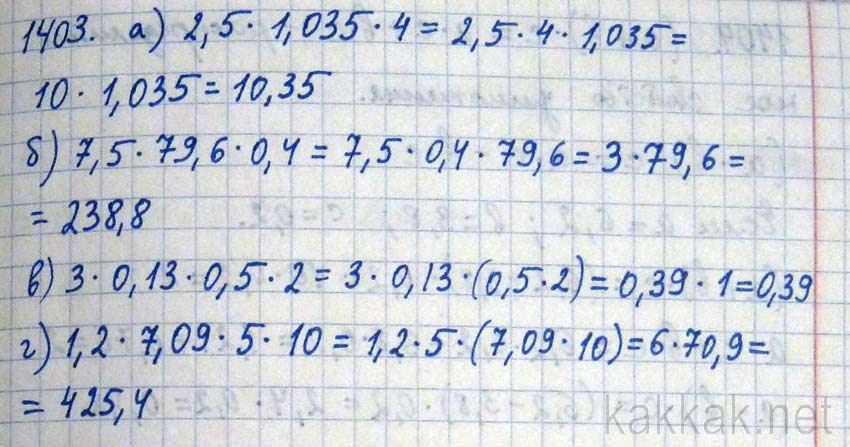 1403. а) 2,5 · 1,035 · 4 = 2,5 · 4 · 1,035 =
10 · 1,035 = 10,35
б) 7,5 · 79,6 · 0,4 = 7,5 · 0,4 · 79,6 = 3 · 79,6 =
= 238,8
в) 3 · 0,13 · 0,5 · 2 = 3 · 0,13 · (0,5 · 2) = 0,39 · 1 = 0,39
г) 1,2 · 7,09 · 5 · 10 = 1,2 · 5 · (7,09 · 10) = 6 · 70,9 =
= 425,4
kakkak.net